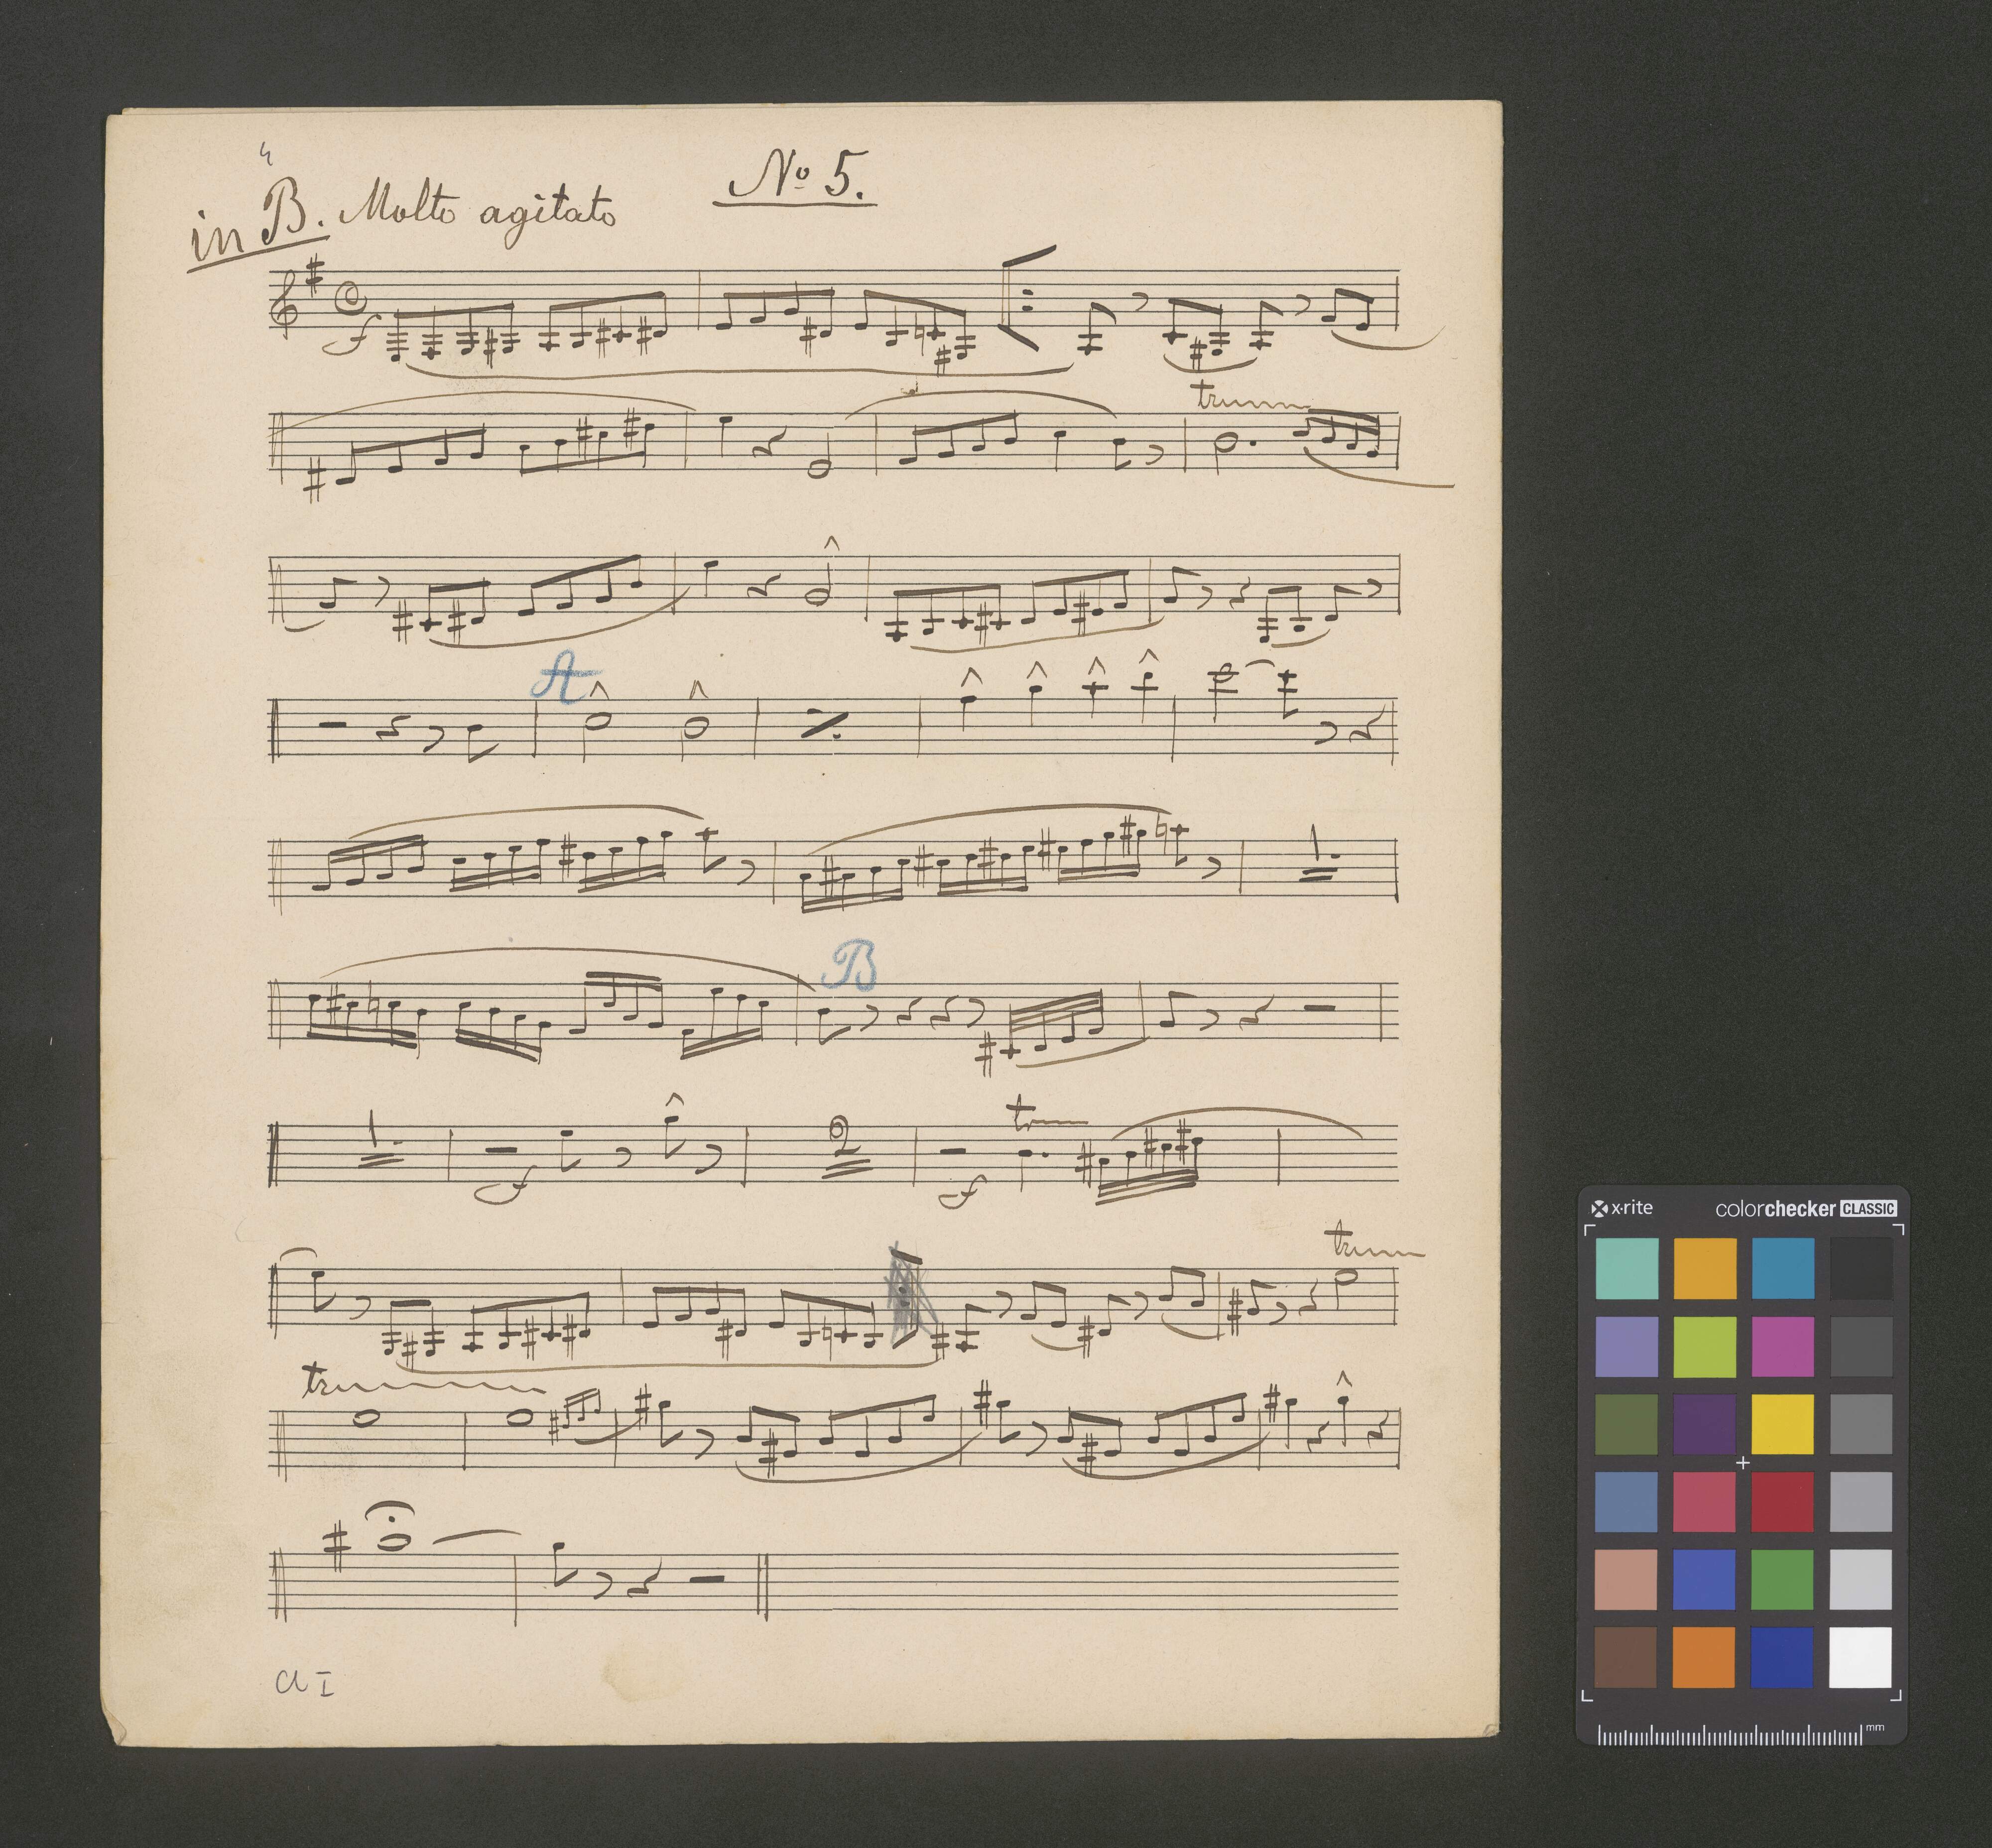 4
No 5.
in B. Molto agitato
f
tr
A
B
f
f
tr
2
tr
tr
Cl I
x-rite
colorchecker CLASSIC
mm